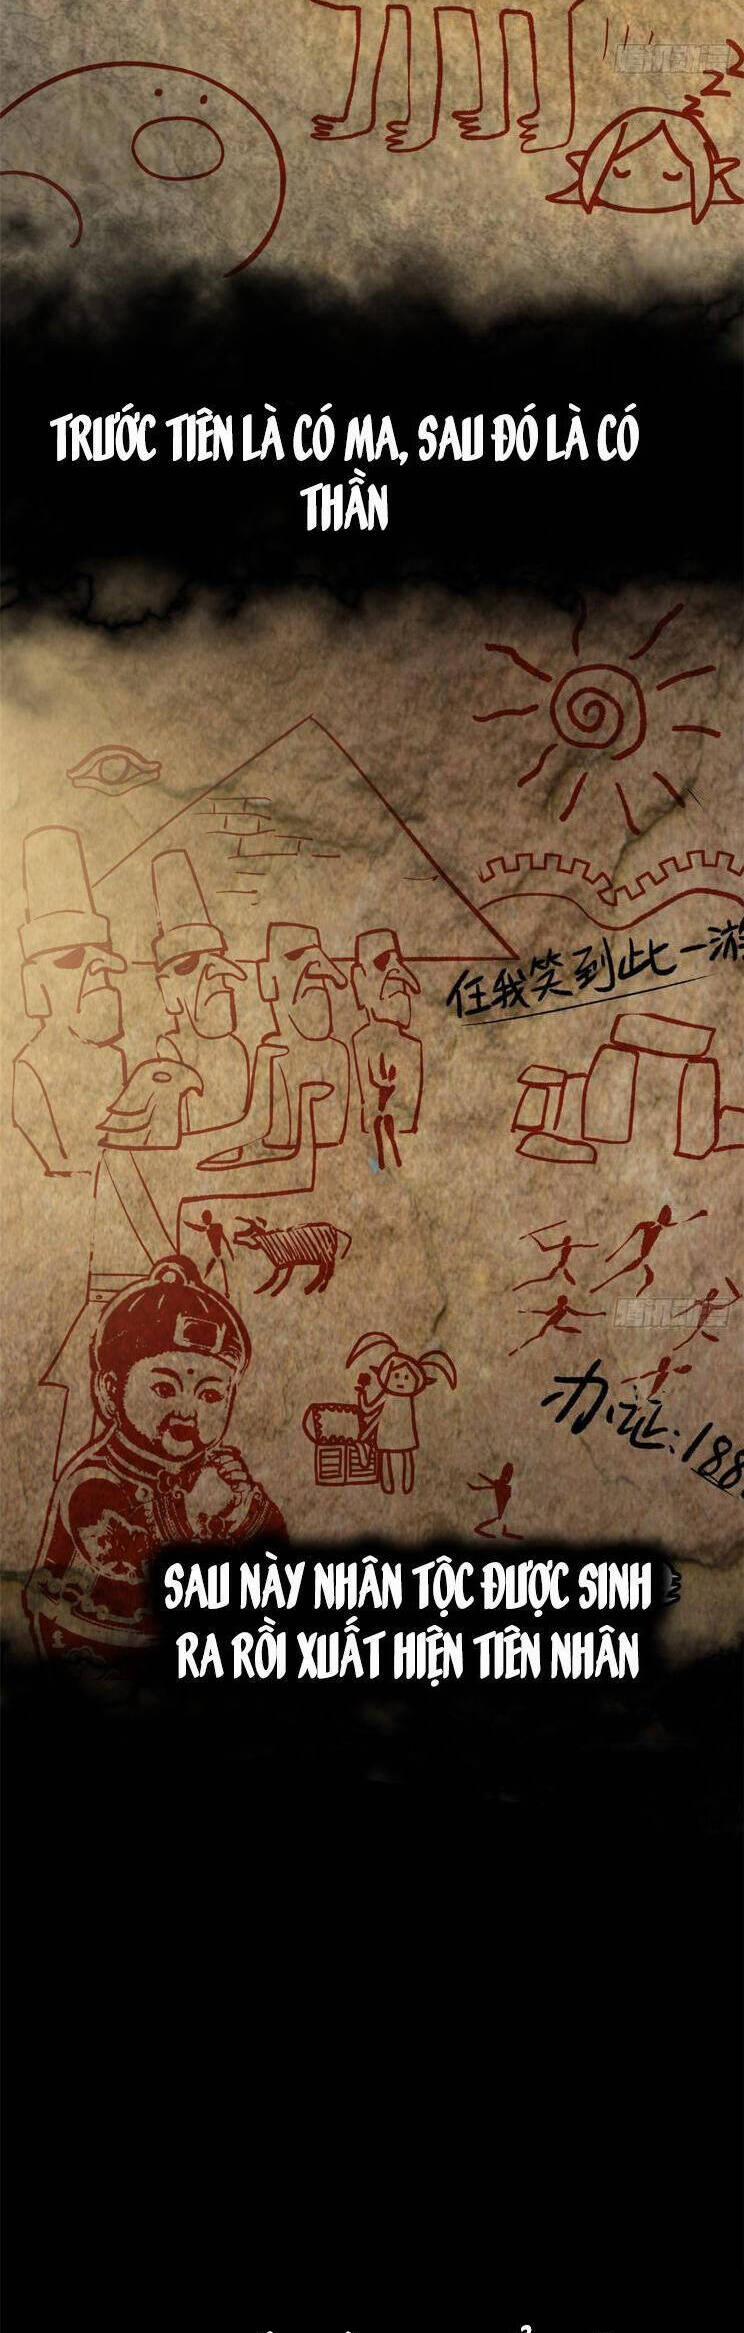 zzz
TRƯỚC TIÊN LÀ CÓ MA, SAU ĐÓ LÀ CÓ
THẦN
任我笑到此一游
办证:188
SAU NÀY NHÂN TỘC ĐƯỢC SINH
RA RỒI XUẤT HIỆN TIÊN NHÂN